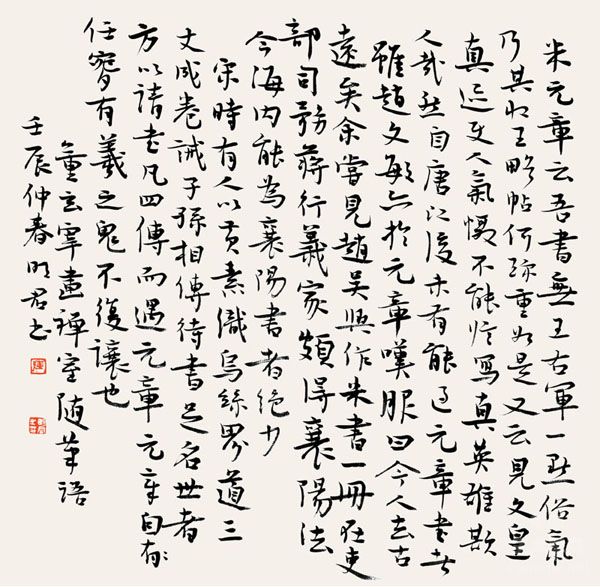 米元章云吾書無王右軍一點俗氣
乃其收王略帖何珍重如是又云見文皇
真迹使人氣懾不能臨寫真英雄欺
人哉然自唐以後未有能過元章書者
雖趙文敏亦於元章嘆服曰今人去古
遠矣余嘗見趙吳興作米書一冊在吏
部司務蔣行義家頗得襄陽法
今海内能為襄陽書者絕少
宋時有人以黃素織烏絲界道三
丈成卷誡子孫相傳待書足名世者
方以請書凡四傳而遇元章元章自
任腕有羲之鬼不復讓也
董玄宰畫禪室随筆語
壬辰仲春明君书